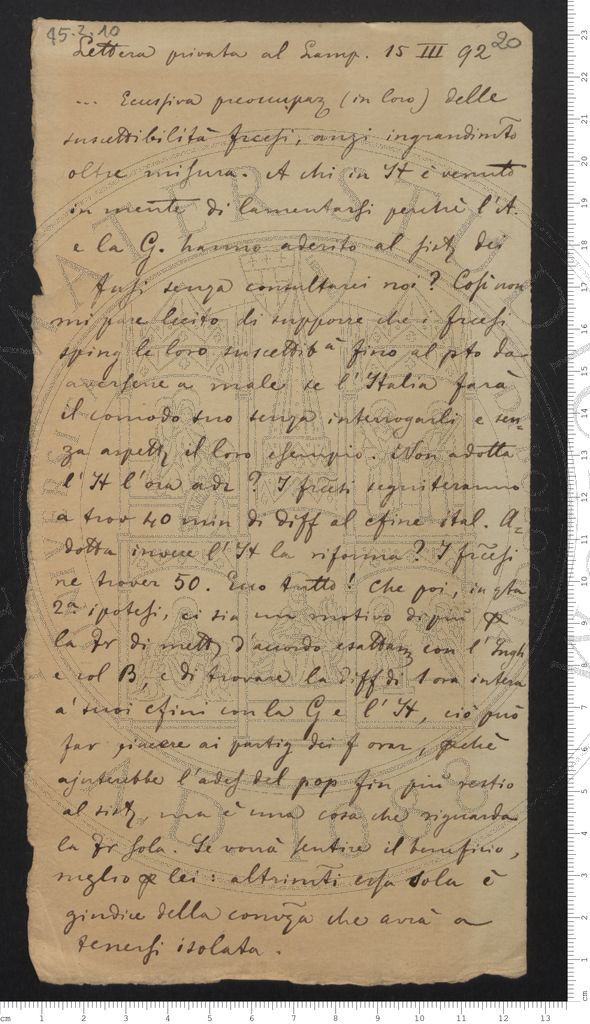 45.2.10
20
Lettera privata al Lamp. 15 III 92
... Ecessiva preoccupaz (in loro) delle
suscettibilità frcesi, anzi ingrandimto
oltre misura. A chi in It è venuto
in mente di lamentarsi perchè l'A.
e la G. hanno aderito al sist dei
fusi senza consultarci noi? Così non
mi pare lecito di supporre che i frcesi
sping le loro suscettibà fino al pto da
aversene a male se l'Italia farà
il comodo suo senza interrogarli e sen=
za aspett il loro esempio. Non adotta
l'It l'ora adr? I frcesi seguiteranno
a trov 40 min di diff al cfine ital. A=
dotta invece l'It la riforma? I frcesi
ne trover 50. Ecco tutto! Che poi, in qta
2a ipotesi, ci sia un motivo di più p
la Fr di mett d'accordo esattam con l'Ingh
e col B, e di trovare la diff di 1 ora intera
a' suoi cfini con la G e l'It, ciò può
far piacere ai partig dei f orar, pchè
ajuterebbe l'ades del pop fin più restio
al sist, ma è una cosa che riguarda
la Fr sola. Se vorrà sentire il beneficio,
meglio p lei: altrimti essa sola è
giudice della convza che avrà a
tenersi isolata.